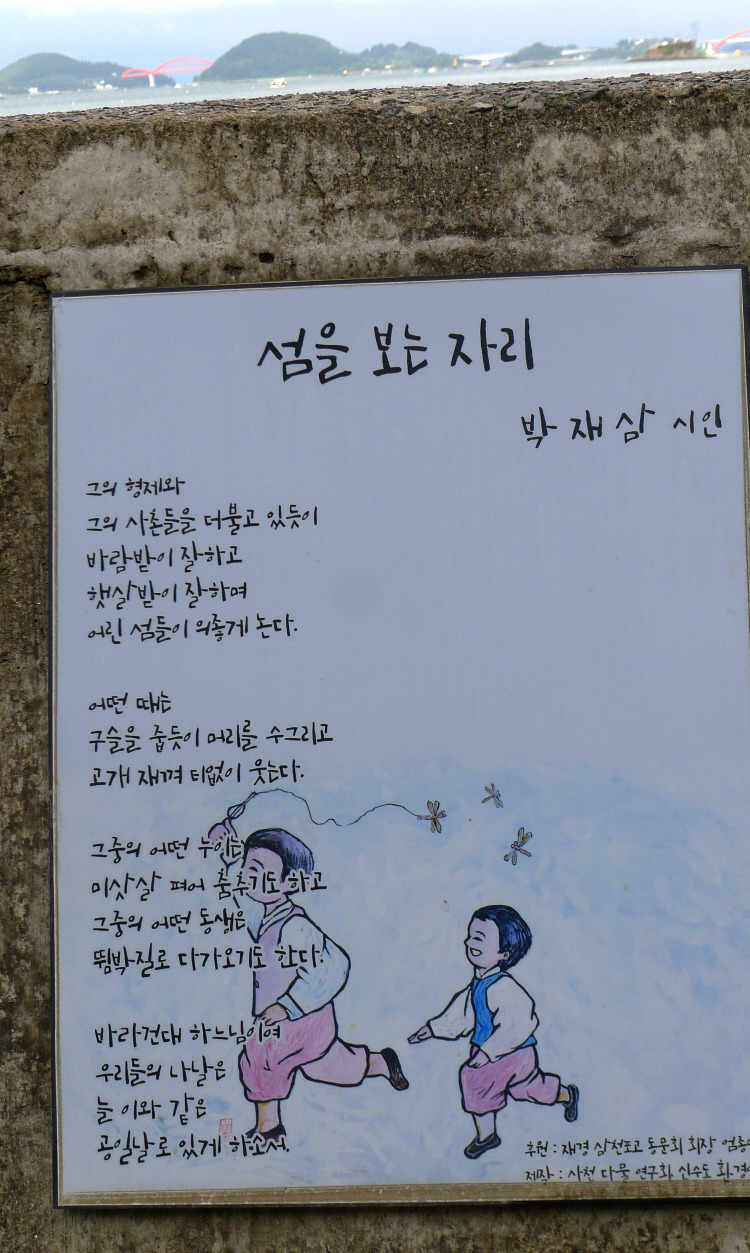 섬을 보는 자리
박재삼 시인
그의 형제와
그의 사촌들을 더불고 있듯이
바람받이 잘하고
햇살받이 잘하며
어린 섬들이 의좋게 논다.
어떤 때는
구슬을 줍듯이 머리를 수그리고
고개 재껴 티없이 웃는다.
그중의 어떤 누이는
미삿살 펴어 춤추기도 하고
그중의 어떤 동생은
뜀박질로 다가오기도 한다.
바라건대 하느님이여
우리들의 나날은
늘 이와 같은
공일날로 있게 하소서.
후원 : 재경 삼천포고 동문회 회장 엄
제작 : 사천 다물 연구화 신수도 환경